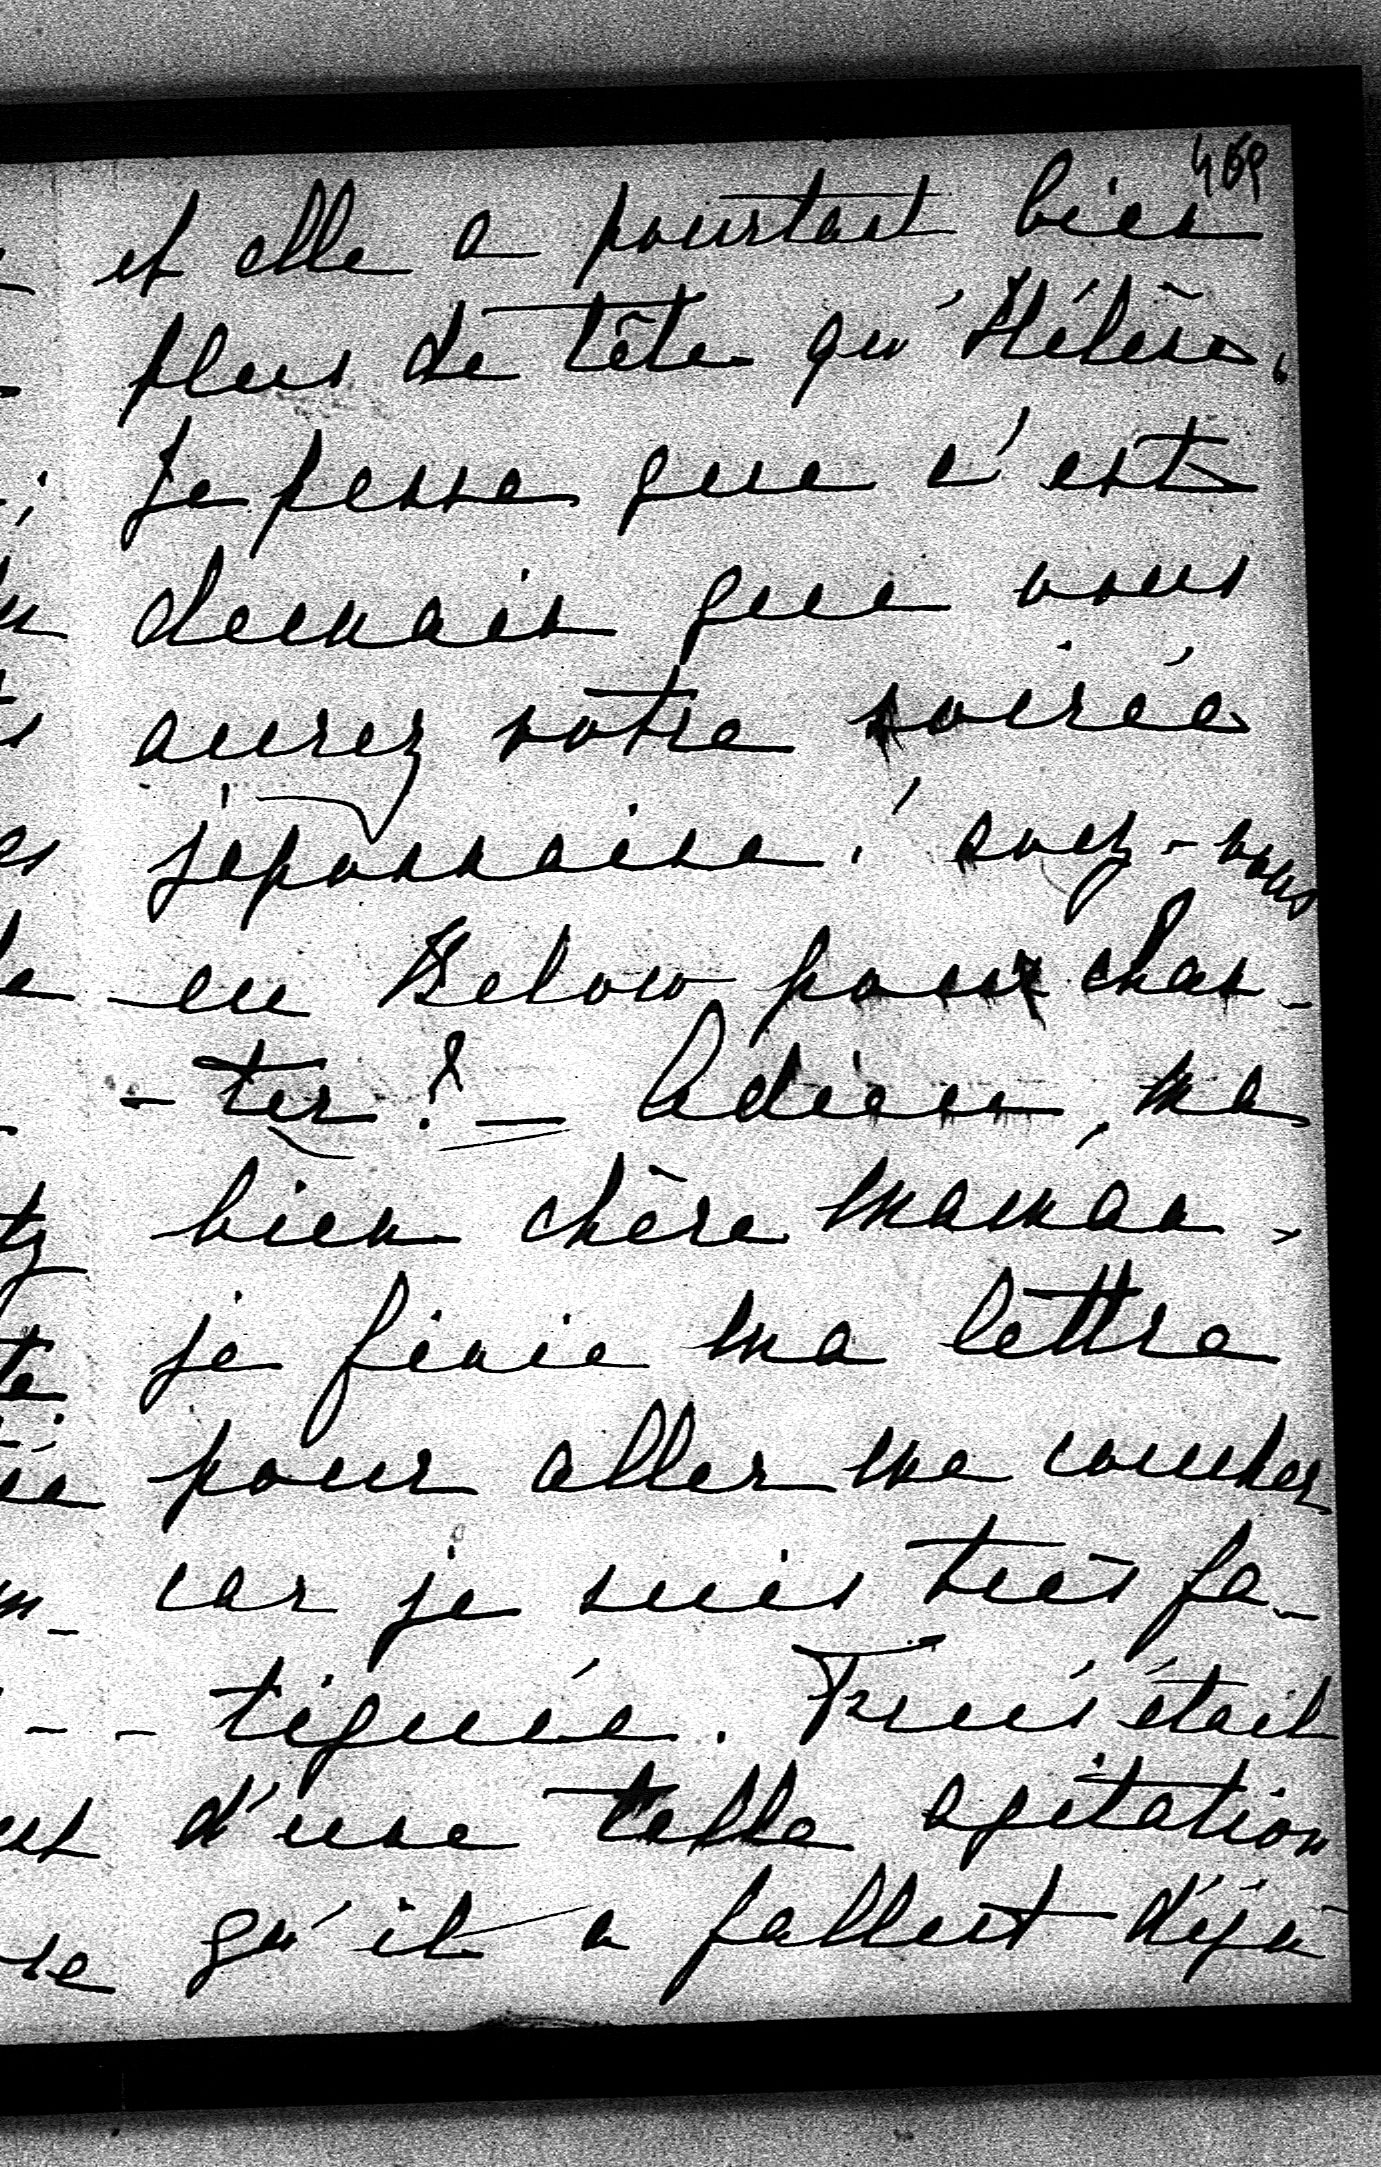 469
et elle a pourtant bien
plus de tête qu'Hélène.
Je pense que c'est
demain que vous
aurez votre soirée
japonaise ; avez-vous
eu Below pour chan-
-ter ? — Adieu, ma
bien chère maman,
je finie ma lettre
pour aller me coucher
car je suis très fa-
-tiguée. Fuis était
d'une telle agitation
qu'il a fallut déjà